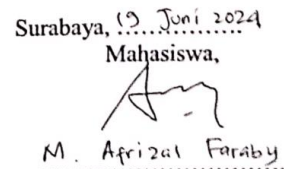 Surabaya, 19 Juni 2024
Mahasiswa,
M. Afrizal Faraby